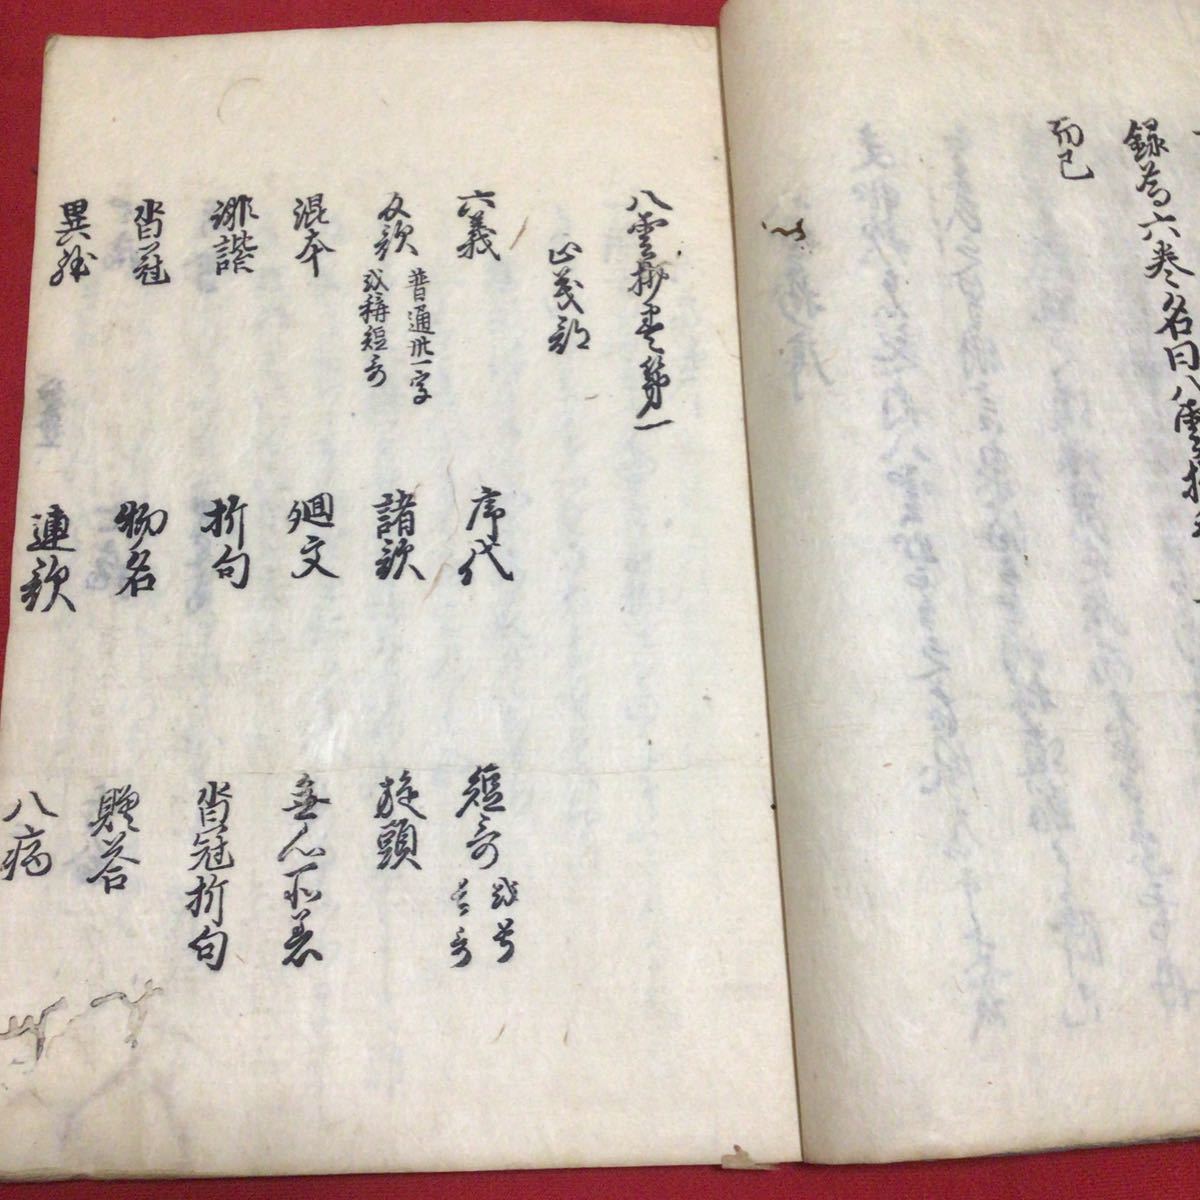 録為六巻名曰八雲抄
而已
八雲抄巻第一
正義部
六義 序代 短哥 或号長哥
反歌 普通卅一字 或稱短哥 諸歌 旋頭
混本 廻文 無心所着
誹諧 折句 沓冠折句
沓冠 物名 贈答
異躰 連歌 八病